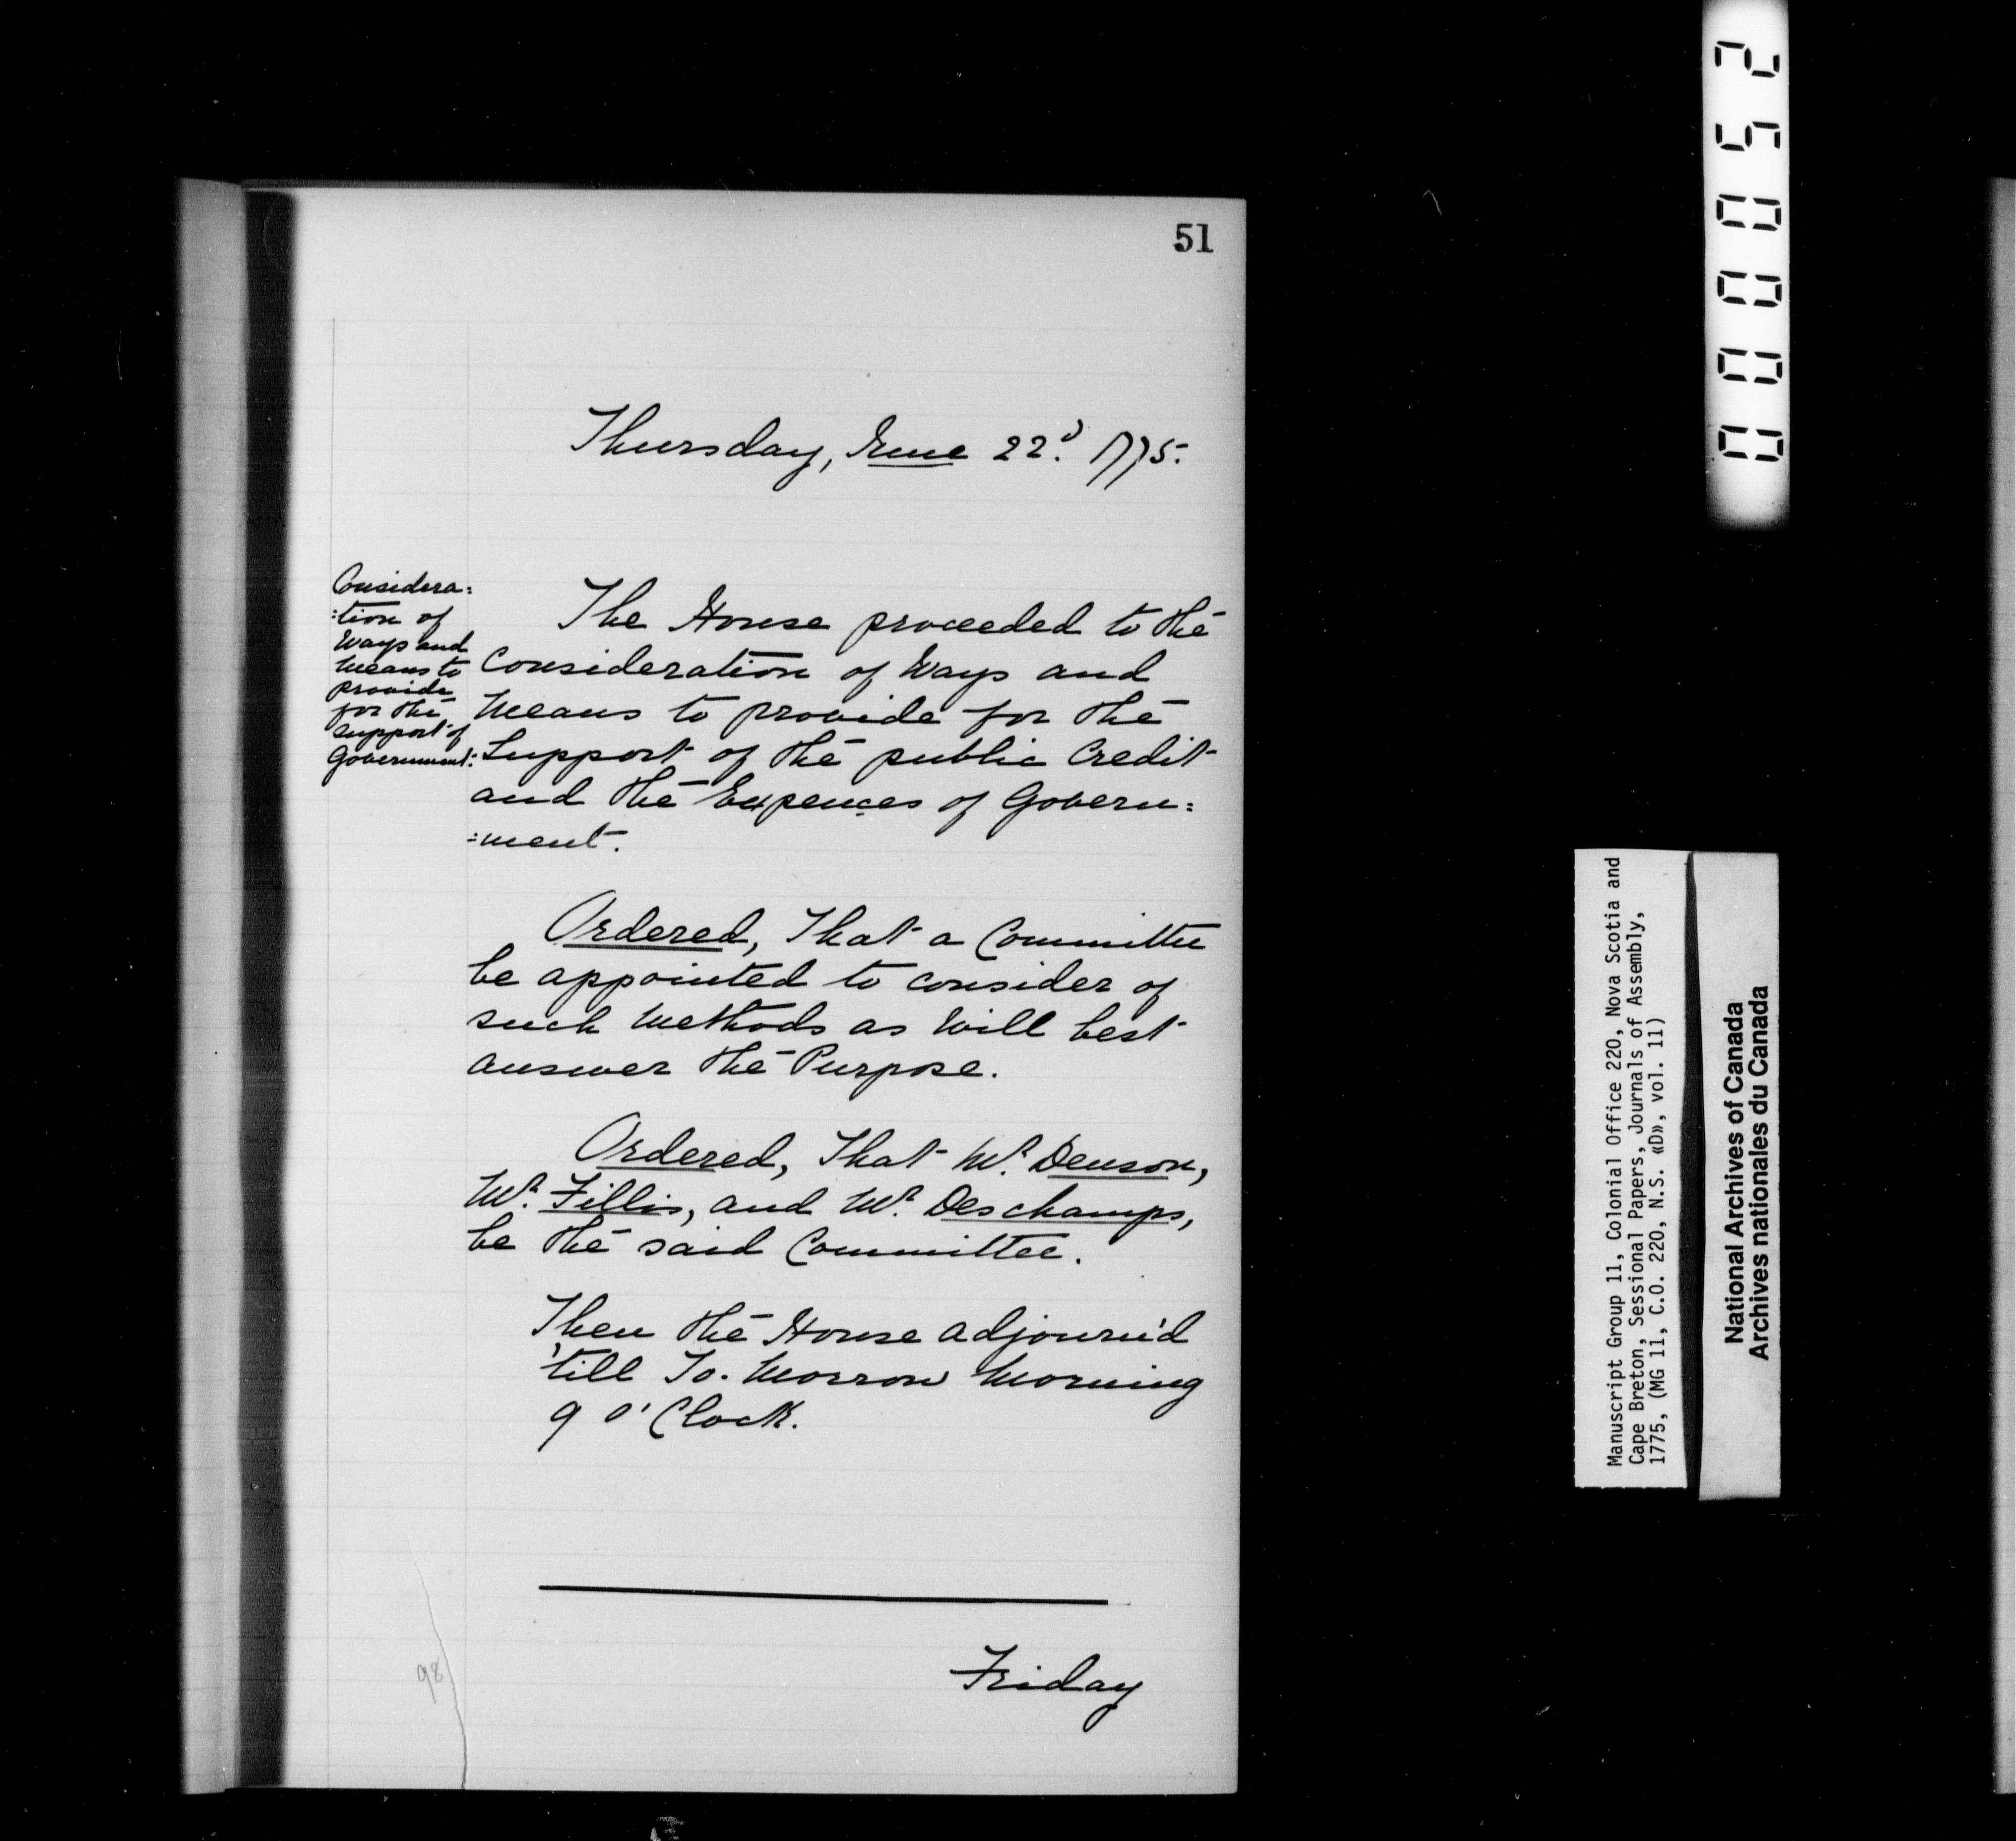 51
Thursday, June 22d. 1775.
Considera:
:tion of
Ways and
Means to
provide
for the
support of
Government:
The House proceeded to the
Consideration of Ways and
Means to provide for the
Support of the public Credit
and the Expences of Govern:
:ment.
Ordered, That a Committee
be appointed to consider of
such Methods as Will best
answer the Purpose.
Ordered, That Mr. Denson,
Mr. Fillis, and Mr. Deschamps,
be the said Committee.
Then the House adjourn'd
'till To-Morrow Morning
9 o'Clock.
Friday
98
000052
Manuscript Group 11, Colonial Office 220, Nova Scotia and
Cape Breton, Sessional Papers, Journals of Assembly,
1775, (MG 11, C.O. 220, N.S. «D», vol. 11)
National Archives of Canada
Archives nationales du Canada